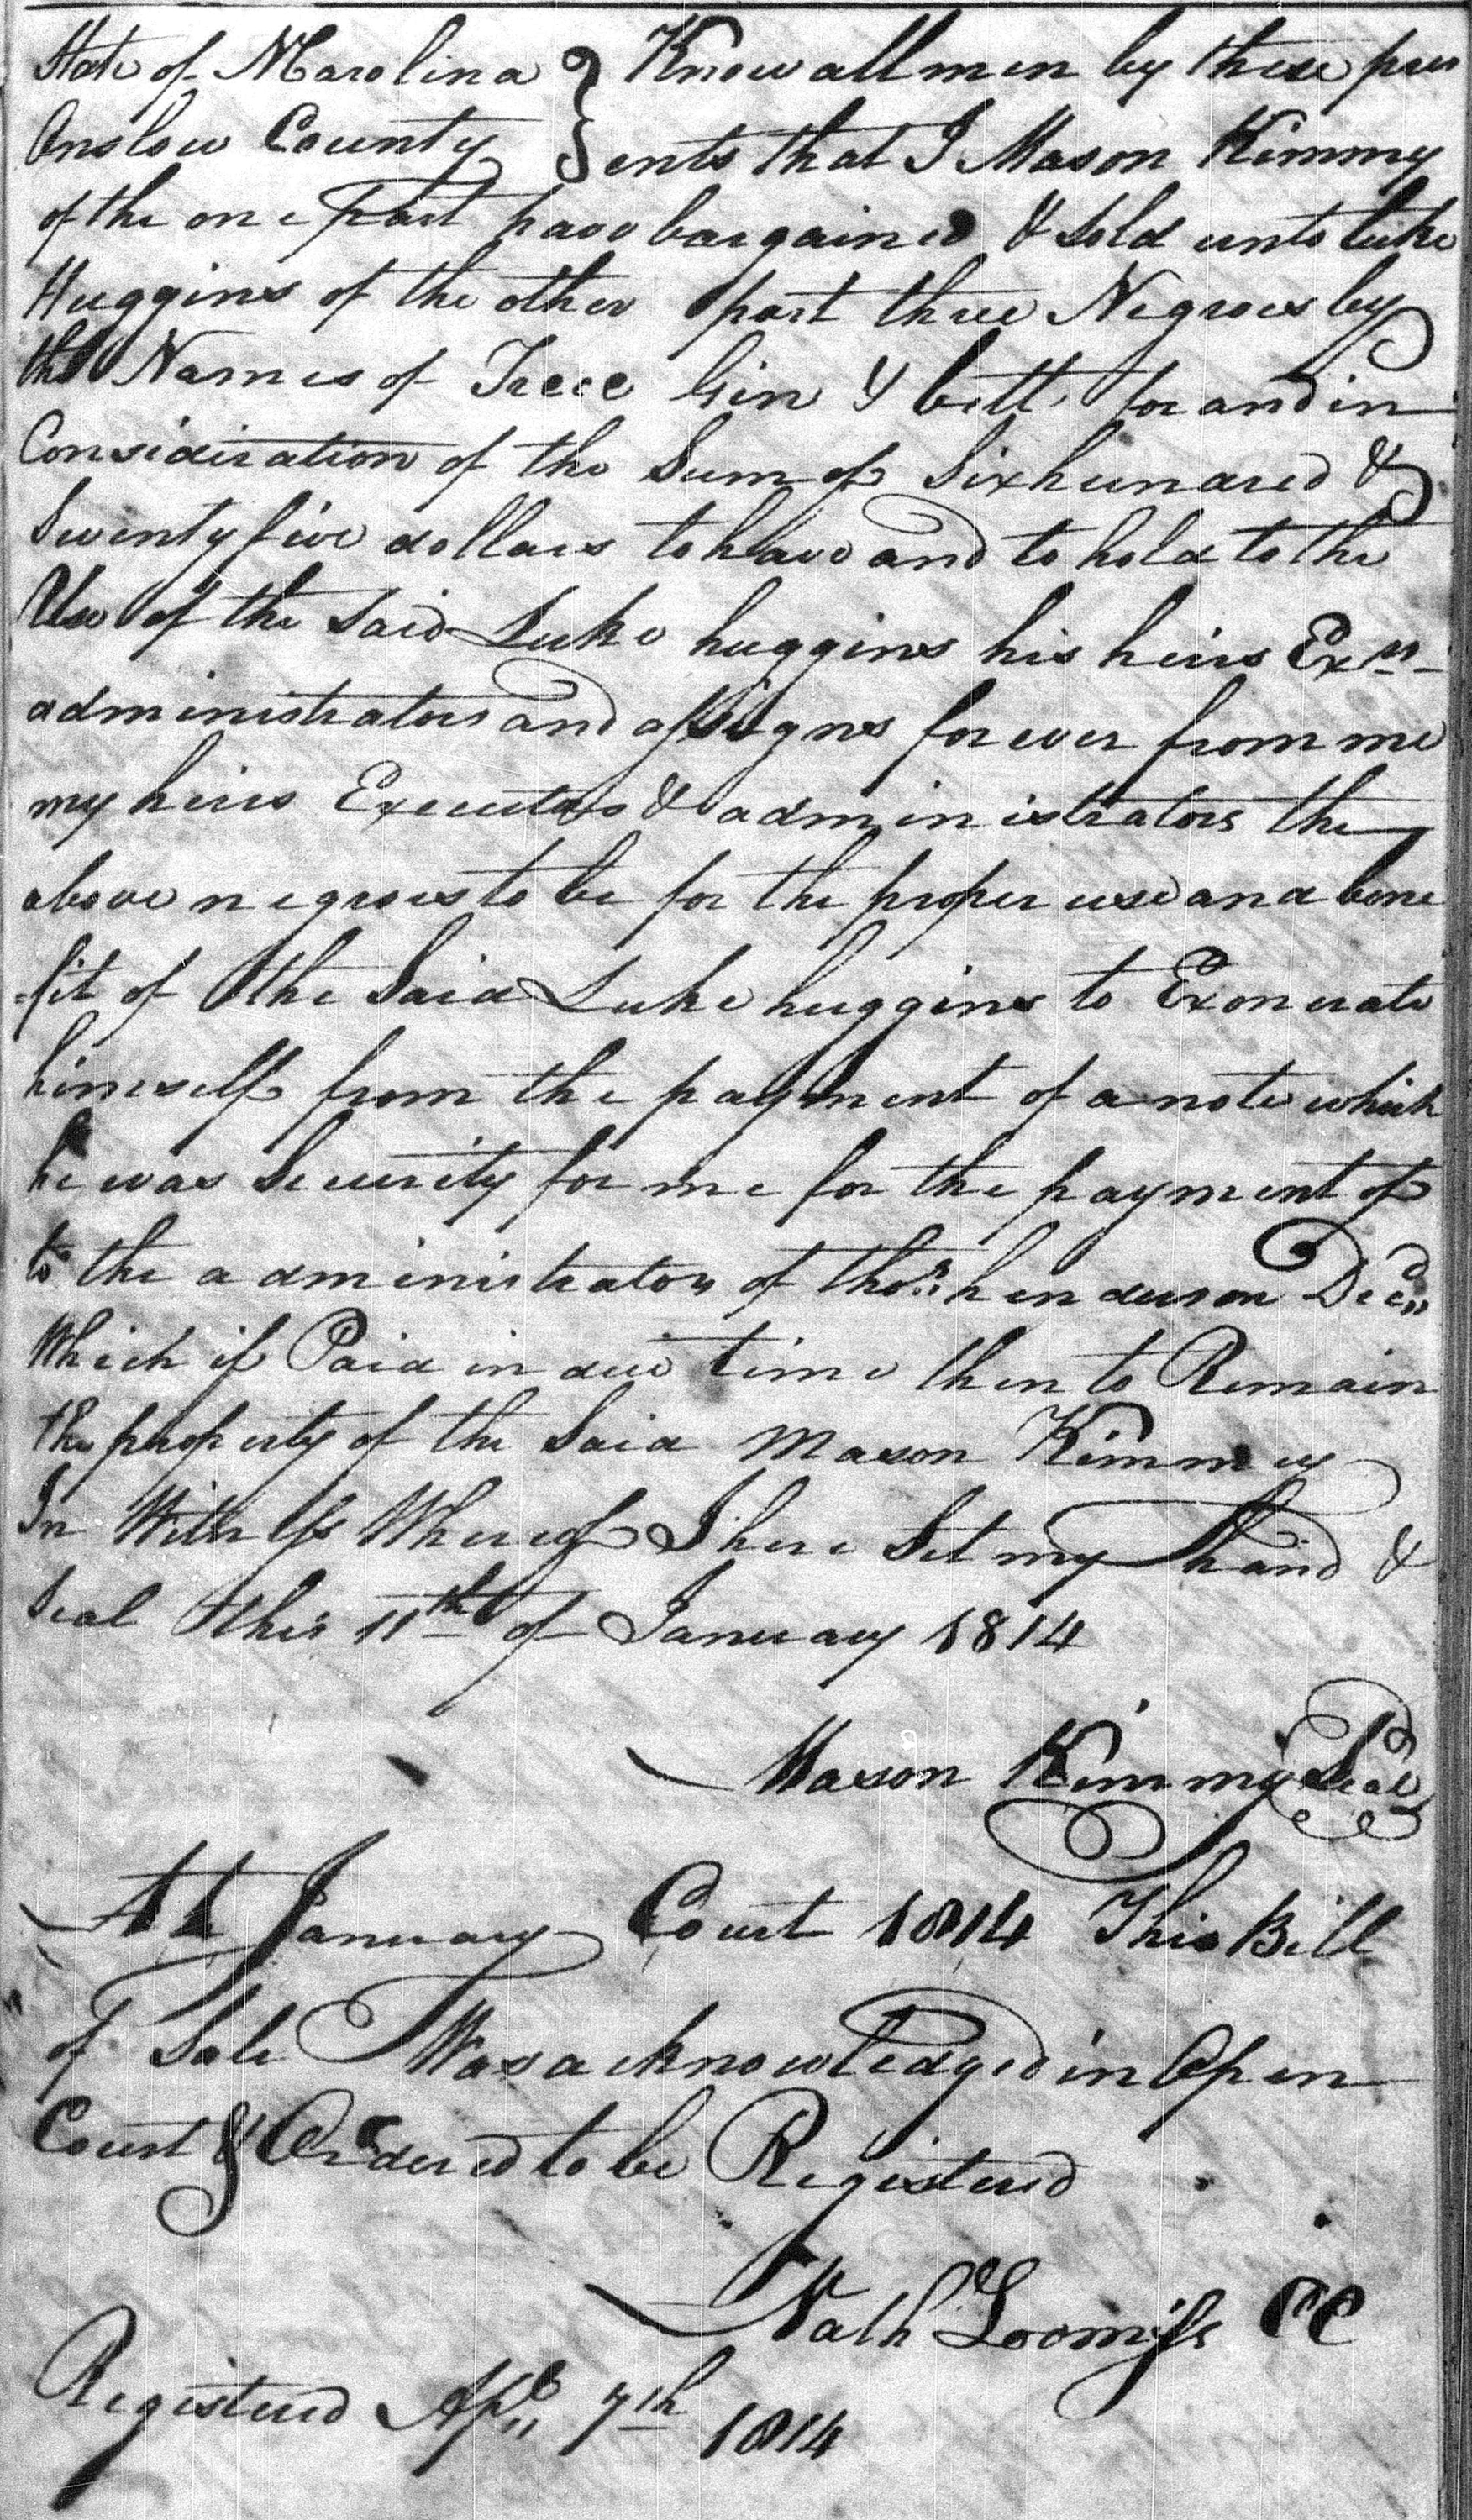 State of NCarolina } Know all men by these pres
Onslow County } ents that I Mason Kimmy
of the one part have bargained & Sold unto Luke
Huggins of the other part three Negroes by
the Names of Treec Gin & bett for and in
Consideration of the Sum of Six hundred &
Twenty five dollars to have and to hold to the
Use of the Said Luke huggins his heirs Exrs
administrators and assigns forever from me
my heirs Executors & administrators the
above negroes to be for the proper use and bene
-fit of the Said Luke huggins to Exonerate
himself from the payment of a note which
he was Security for me for the payment of
to the administrators of thos henderson Decd
Which if Paid in due time then to Remain
the property of the Said Mason Kimmey
In Witness Whereof I here Set my hand &
Seal this 11th of January 1814
Mason Kimmy Seal
At January Court 1814 This Bill
of Sale Was acknowledged in Open
Court & Ordered to be Registered
Nath Loomiss CC
Registered Apl 7th 1814